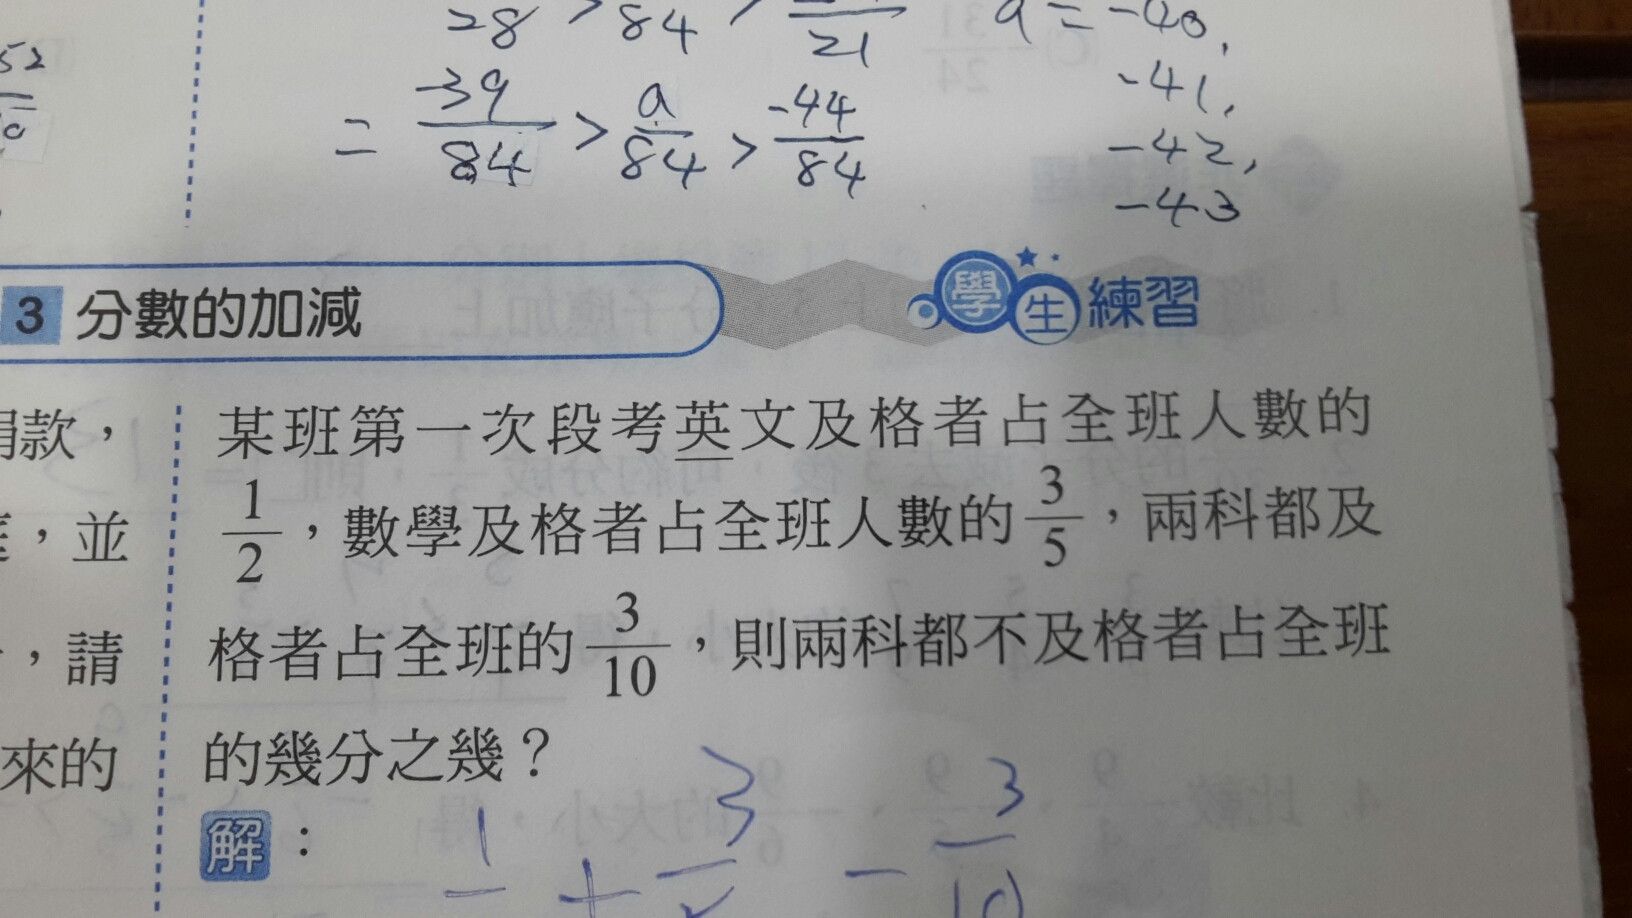 28 > 84 > 21 a = -40,
52
-41,
= -39/84 > a/84 > -44/84
-42,
-43
3 分數的加減 學生練習
款，
某班第一次段考英文及格者占全班人數的
，並
1/2，數學及格者占全班人數的3/5，兩科都及
，請
格者占全班的3/10，則兩科都不及格者占全班
來的
的幾分之幾？
解：
1 + 3/5 - 3/10